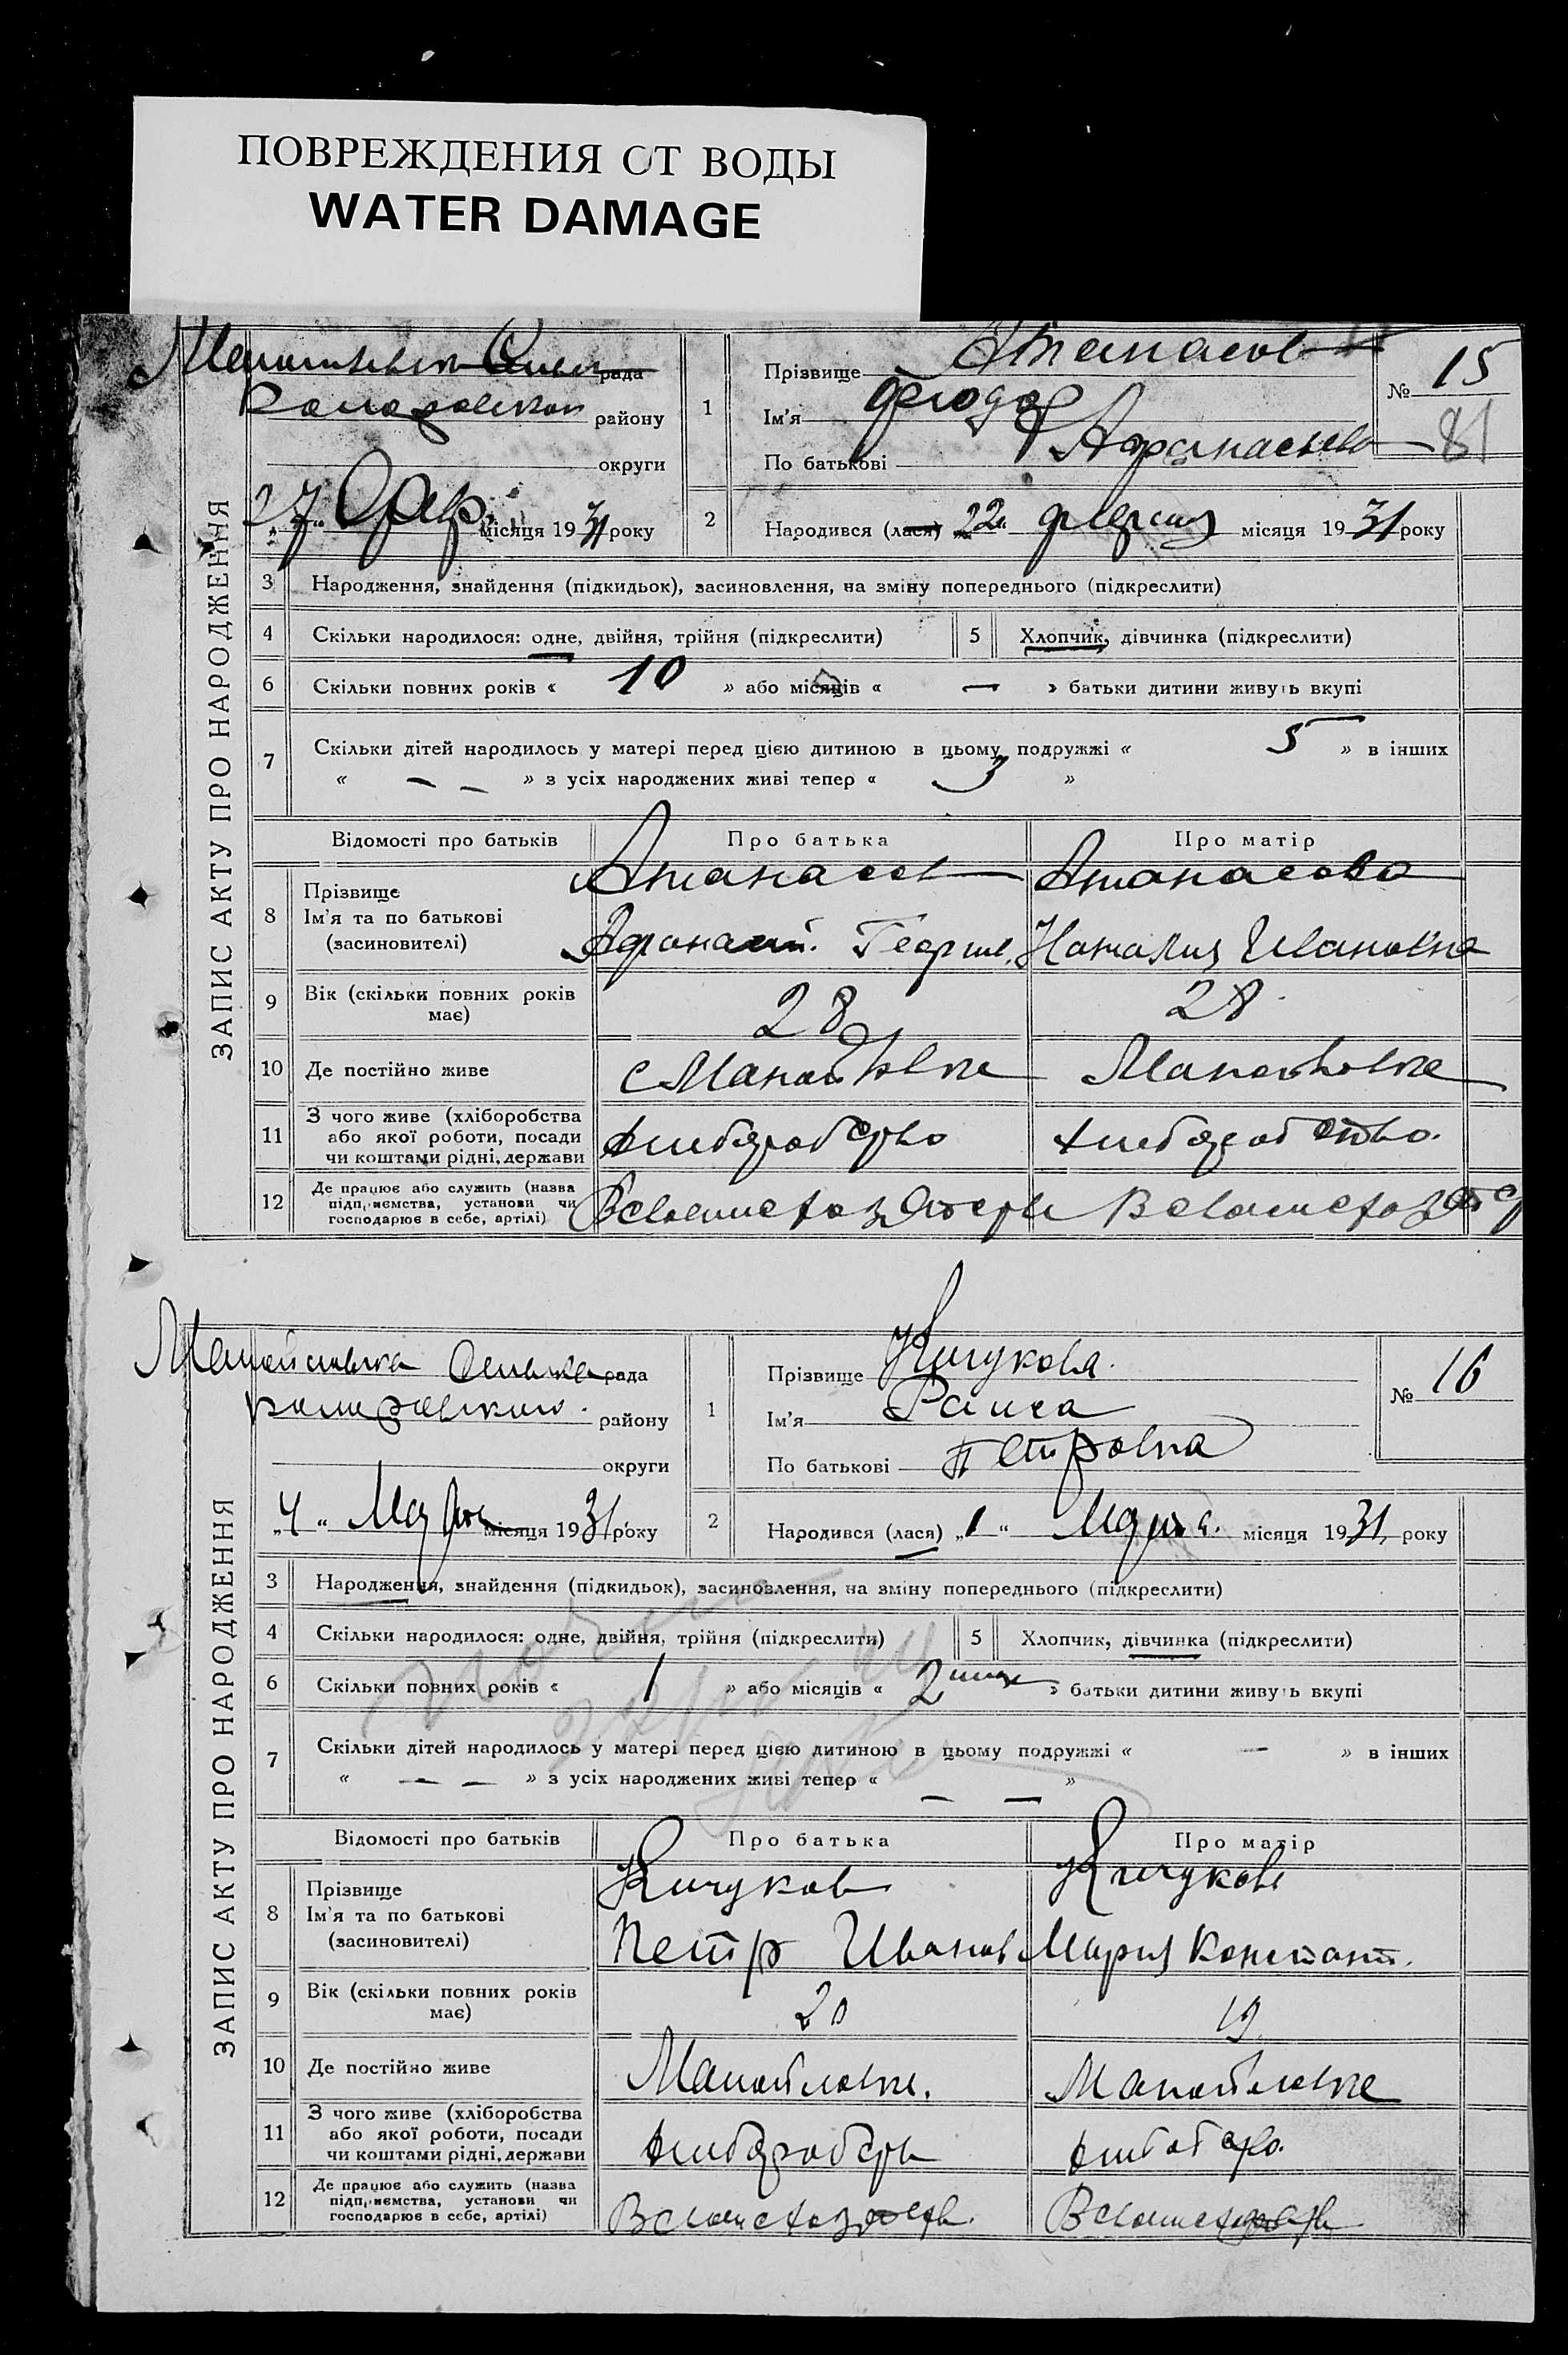 ПОВРЕЖДЕНИЯ ОТ ВОДЫ
WATER DAMAGE
ЗАПИС АКТУ ПРО НАРОДЖЕННЯ
рада
району
округи
27 Фев. місяця 1931 року
1 Прізвище Атанасов
Ім'я Феодор
По батькові Афанасьев
№ 15
81
2 Народився (лася) 22 февраля місяця 1931 року
3 Народження, знайдення (підкидьок), засиновлення, на зміну попереднього (підкреслити)
4 Скільки народилося: одне, двійня, трійня (підкреслити) 5 Хлопчик, дівчинка (підкреслити)
6 Скільки повних років « 10 » або місяців « — » батьки дитини живуть вкупі
7 Скільки дітей народилось у матері перед цією дитиною в цьому подружжі « 5 » в інших
« — — » з усіх народжених живі тепер « 3 »
Відомості про батьків Про батька Про матір
8 Прізвище Атанасов Атанасова
Ім'я та по батькові Афанасий Георгие. Наталия Ивановна
(засиновителі)
9 Вік (скільки повних років має) 28 28
10 Де постійно живе Манойловке
11 З чого живе (хліборобства
або якої роботи, посади
чи коштами рідні, держави
12 Де працює або служить (назва
підприємства, установи чи
господарює в себе, артілі)
ЗАПИС АКТУ ПРО НАРОДЖЕННЯ
Манойловка рада
району
округи
„4“ Марта місяця 1931 року
1 Прізвище Кичукова
Ім'я Раиса
По батькові Петровна
№ 16
2 Народився (лася) „1“ Марта місяця 1931 року
3 Народження, знайдення (підкидьок), засиновлення, на зміну попереднього (підкреслити)
4 Скільки народилося: одне, двійня, трійня (підкреслити) 5 Хлопчик, дівчинка (підкреслити)
6 Скільки повних років « 1 » або місяців « 2 » батьки дитини живуть вкупі
7 Скільки дітей народилось у матері перед цією дитиною в цьому подружжі « — » в інших
« — — » з усіх народжених живі тепер « — — »
Відомості про батьків Про батька Про матір
8 Прізвище Кичуков Кичукова
Ім'я та по батькові Петр Иванов Мария Констант.
(засиновителі)
9 Вік (скільки повних років має) 20 19
10 Де постійно живе Манойловке. Манойловке
11 З чого живе (хліборобства
або якої роботи, посади
чи коштами рідні, держави
12 Де працює або служить (назва
підприємства, установи чи
господарює в себе, артілі)